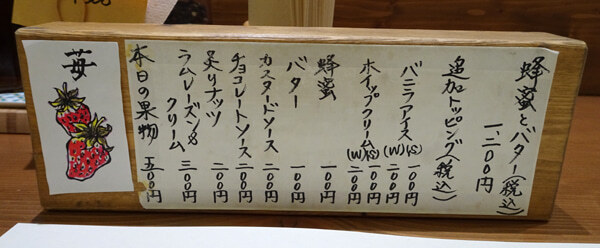 蜂蜜とバター(税込)
一、二〇〇円
追加トッピング(税込)
バニラアイス(S) 一〇〇円
(W) 二〇〇円
ホイップクリーム(S) 一〇〇円
(W) 二〇〇円
蜂蜜 一〇〇円
バター 一〇〇円
カスタードソース 二〇〇円
チョコレートソース 二〇〇円
炙りナッツ 二〇〇円
ラムレーズン&
クリーム 三〇〇円
本日の果物 五〇〇円
苺